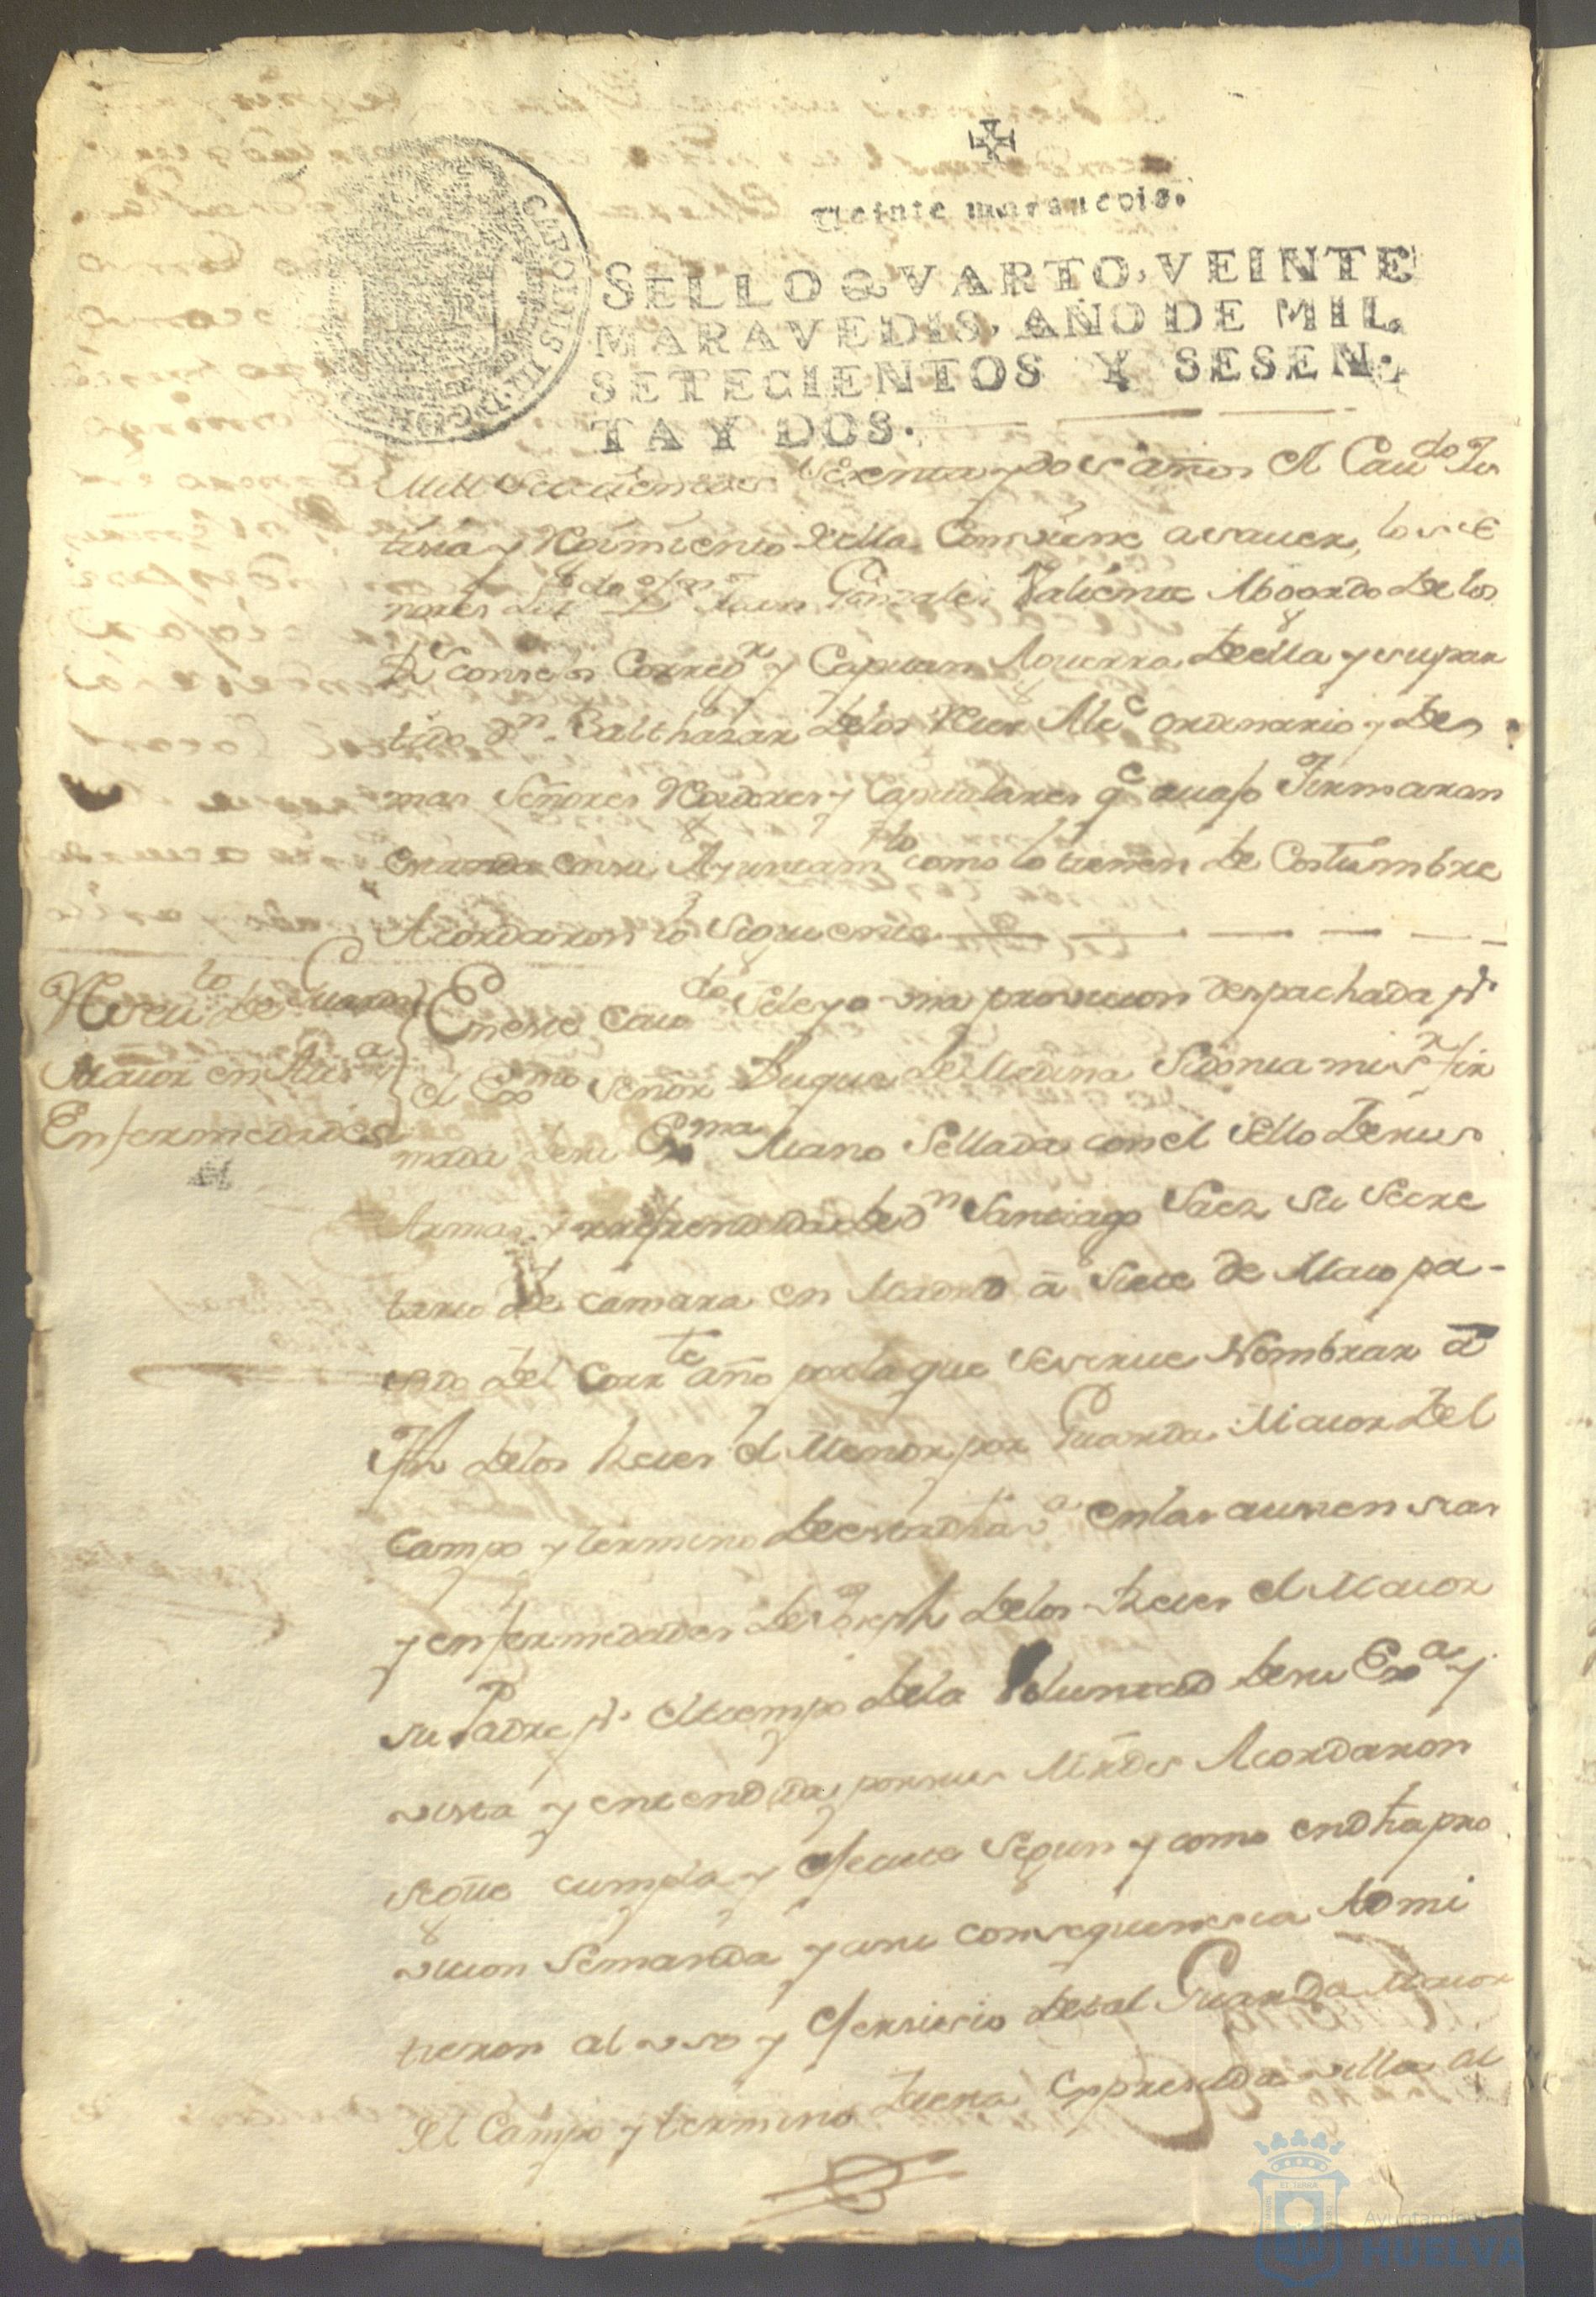 Veinte maravedis.
SELLO QVARTO, VEINTE
MARAVEDIS, AÑO DE MIL
SETECIENTOS Y SESEN-
TA Y DOS.
CAROLUS III D G
Mill Setecientos Sesenta y dos años el Cauᵈᵒ Jus
ticia y Reximiento della Comviene a sauer, los se
ñores Lizᵈᵒ Dⁿ Juan Gonzales Valiente Abogado de los
Rˢ consejos Corregᵒʳ y Capitan Aguerra de ella y su par
tido Dⁿ Balthazar de los Reies Alcᵉ ordinario y de
mas Señores Rexidores y Capitulares qᵉ auajo firmaran
estando en su Ayuntamᵗᵒ como lo tienen de Costumbre
Acordaron lo siguiente
Receuᵗᵒ de Guarda
Maior en Ausᵃˢ y
Enfermedades
En este Cauᵈᵒ se leyo una provicion despachada pʳ
el Exᵐᵒ Señor Duque de Medina Sidonia mi Sʳ fir
mada de su Exᵐᵃ Mano Sellada con el sello de sus
Armas y refrendada de Dⁿ Santiago Saez su Secre
tario de Camara en Madrid â siete de Maio pa-
sado del corrᵗᵉ año por la que se sirue Nombrar â
Jph de los Reies el Menor por Guarda Maior del
Campo y termino de esta dha vᵃ en las ausensias
y enfermedades de Joseph de los Reies el Maior
su Padre pʳ el tiempo de la Voluntad de su Exᵃ y
vista y entendida por sus Mrdes Acordaron
se gue cumpla y efecute segun y como en dha pro
vicion se manda y a su consequensia Admi
tieron al uso y efersisio de tal Guarda Maior
del Campo y termino de esta Expresada villa al
Ayuntamiento
HUELVA